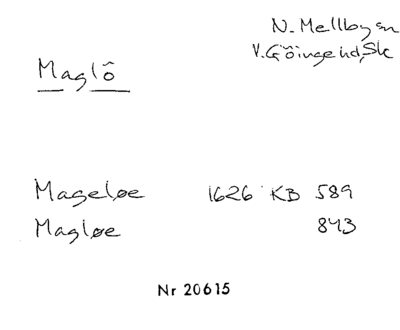 N. Mellby sn
V. Göinge hd, Sk
Maglô
Mageløe 1626 KB 589
Magløe 843
Nr 20615